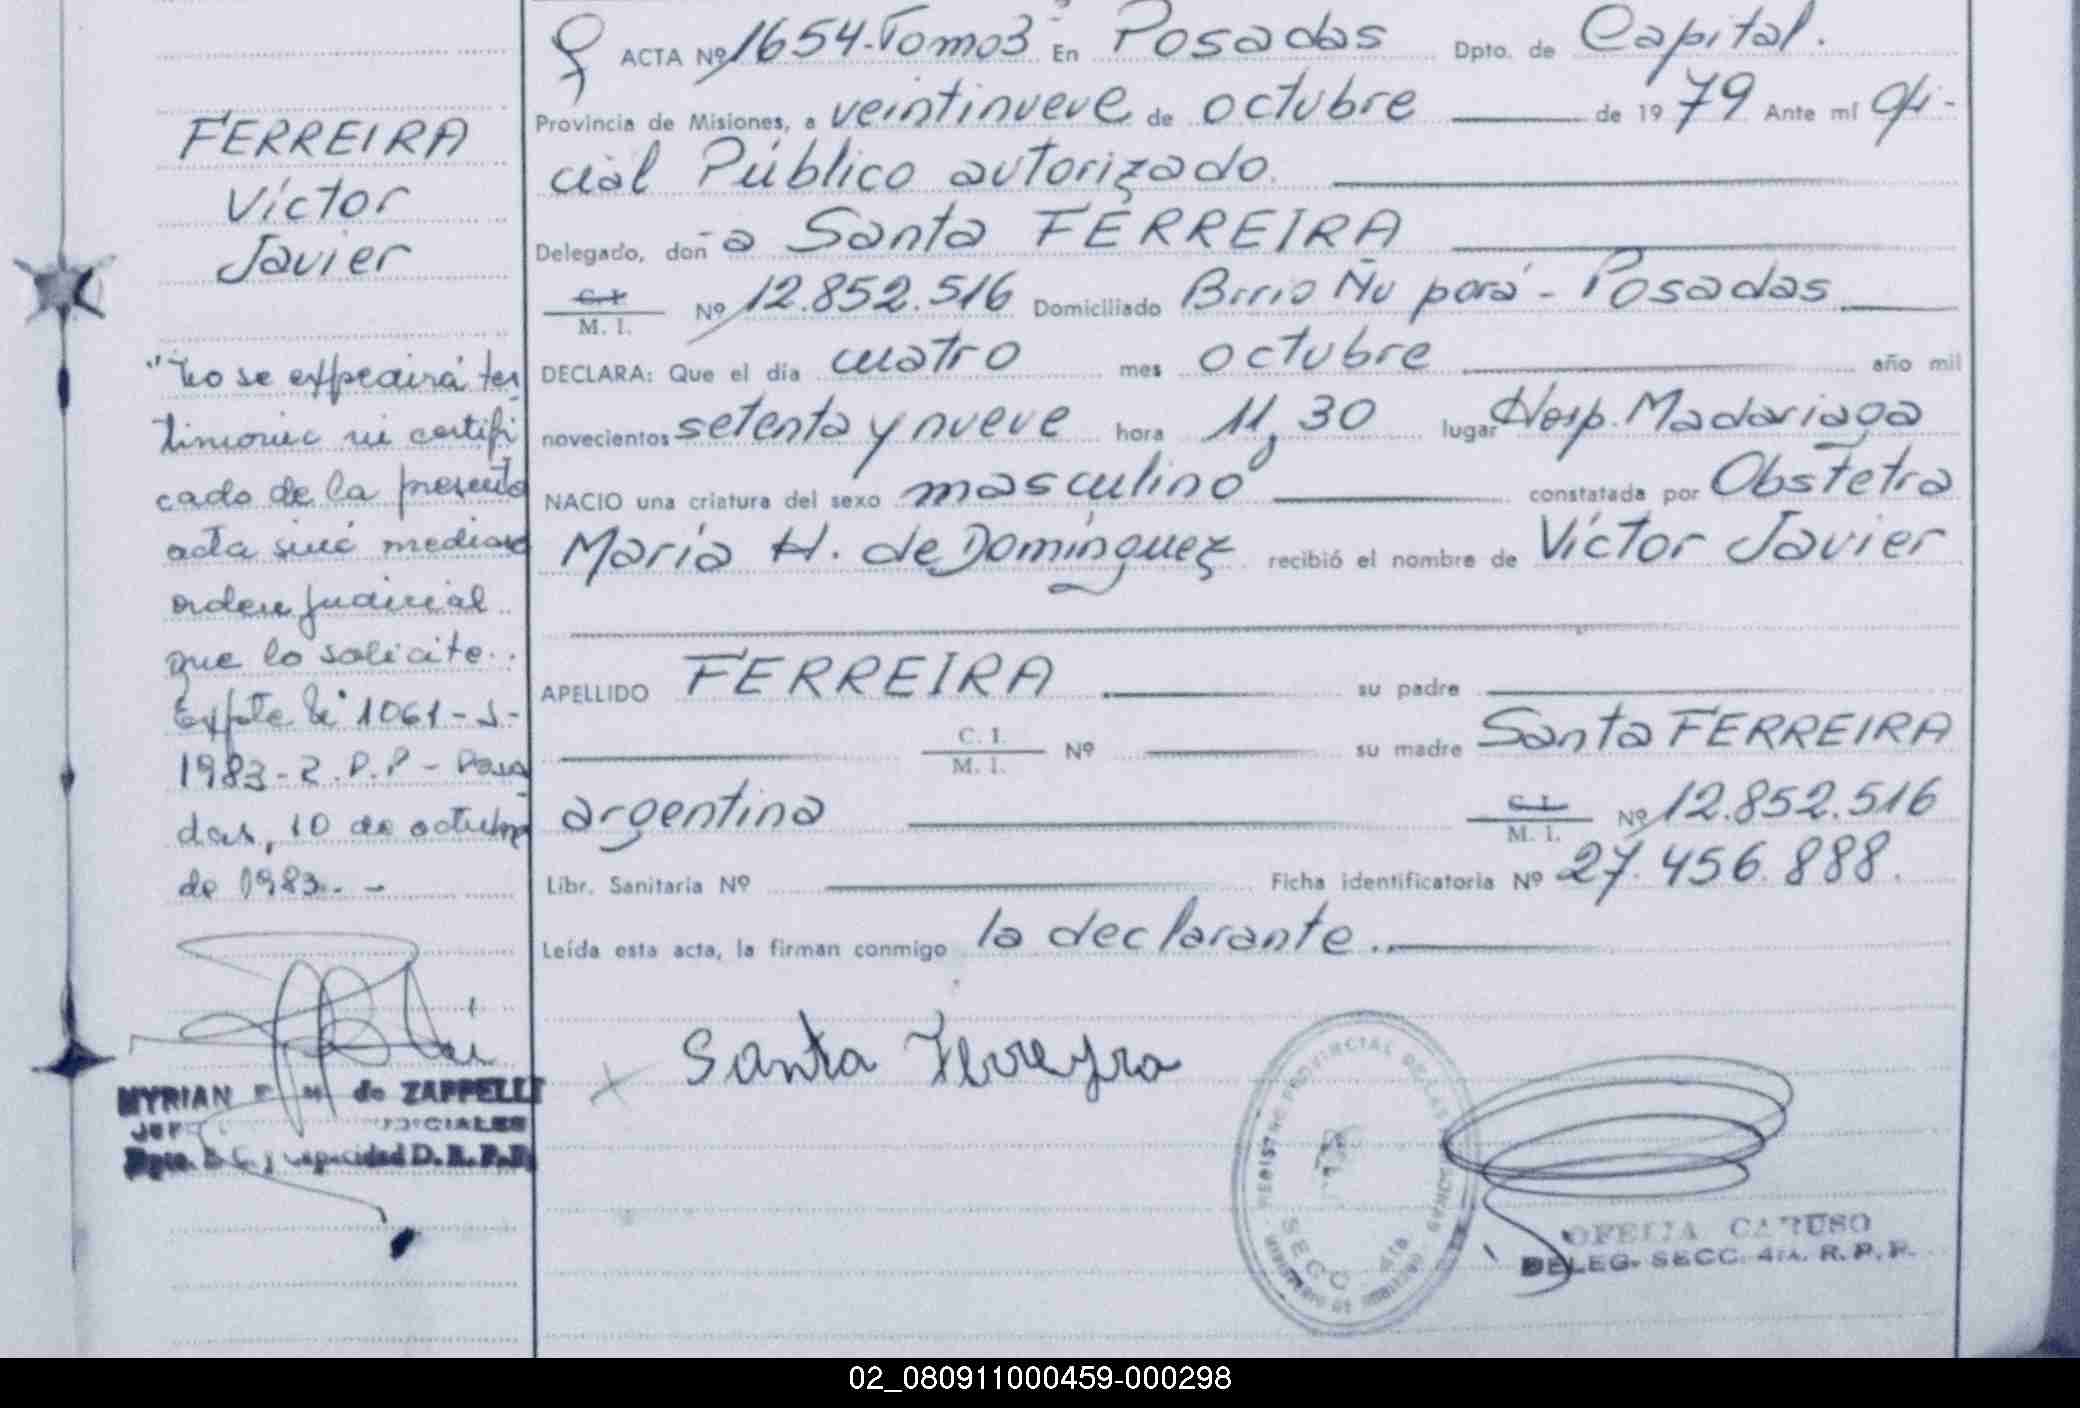 ACTA Nº 1654-Tomo3 En Posadas Dpto. de Capital.
Provincia de Misiones, a veintinueve de octubre de 1979 Ante mí Ofi-
cial Público autorizado.
Delegado, don-a Santa FERREIRA
C. I. / M. I. Nº 12.852.516 Domiciliado Brrio Ñu porá - Posadas
DECLARA: Que el día cuatro mes octubre año mil
novecientos setenta y nueve hora 11,30 lugar Hosp. Madariaga
NACIO una criatura del sexo masculino constatada por Obstetra
María H. de Domínguez recibió el nombre de Víctor Javier
APELLIDO FERREIRA su padre
C. I. / M. I. Nº su madre Santa FERREIRA
argentina C. I. / M. I. Nº 12.852.516
Libr. Sanitaria Nº Ficha identificatoria Nº 27.456.888.
Leída esta acta, la firman conmigo la declarante.
Santa Ferreyra
REGISTRO PROVINCIAL DE LAS PERSONAS
SECC 4ta
OFELIA CARUSO
DELEG. SECC. 4TA. R. P. P.
FERREIRA
Víctor
Javier
"No se expedirá tes
timonio ni certifi
cado de la presente
acta sinó mediante
orden judicial
que lo solicite..
Expte Nº 1061-S-
1983-R.P.P - Posa
das, 10 de octubre
de 1983.. -
MYRIAN de ZAPPELLI
JUDICIALES
Dpto. E. C. y Capacidad D. R. P. P.
02_080911000459-000298